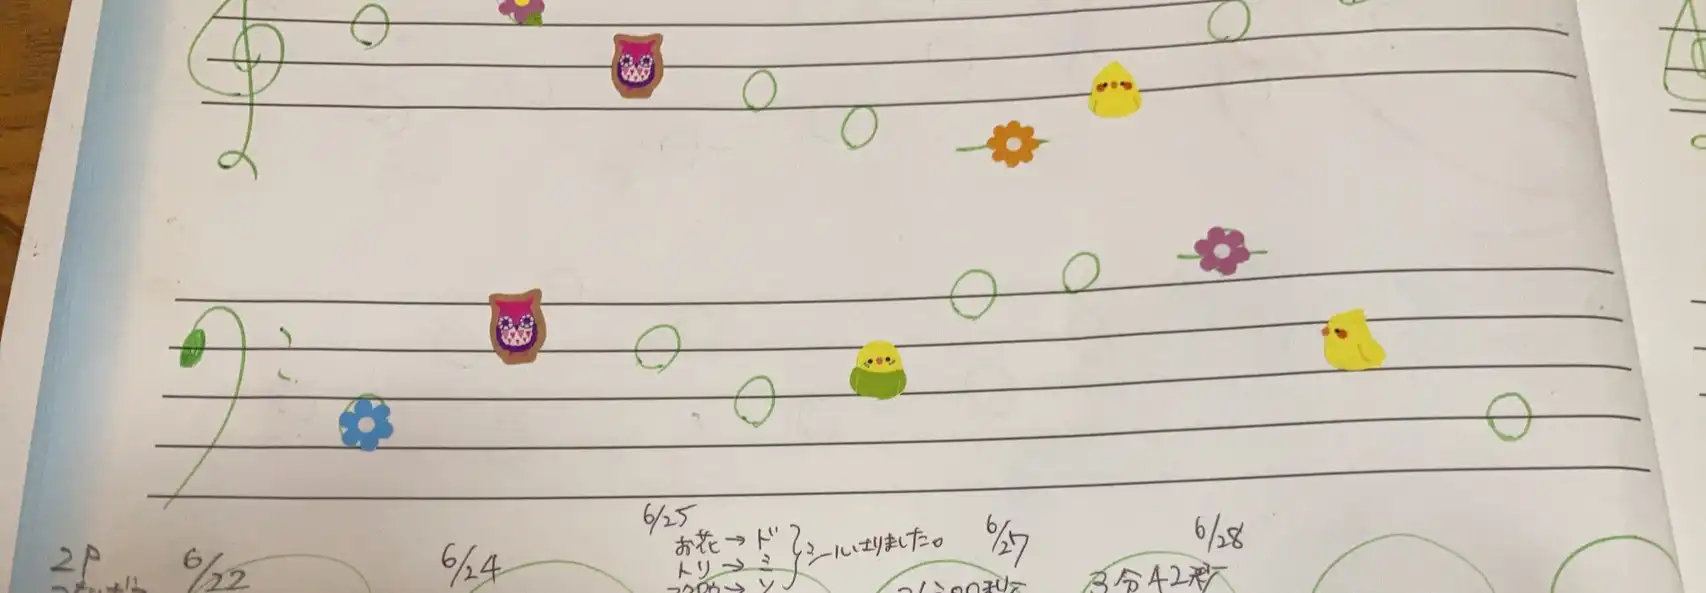 2P
6/22
6/24
6/25
お花→ド
トリ→ミ
シールはりました。
6/27
6/28
3分42秒